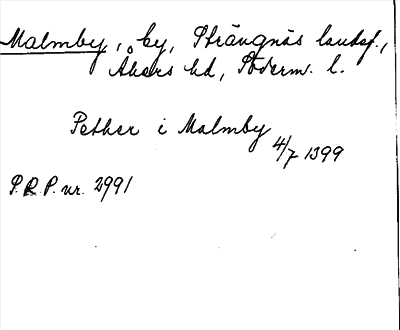 Malmby, by, Strängnäs landsf.,
Åkers hd, Söderm. l.
Pether i Malmby
4/7 1399
P.R.P. nr. 2991